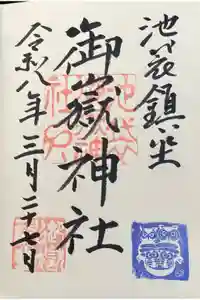 池袋鎮坐
御嶽神社
令和八年三月二十七日